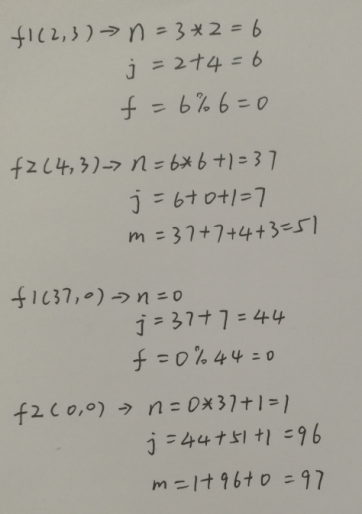 f1(2,3)→ n = 3*2 = 6
j = 2+4 = 6
f = 6%6 = 0
f2(4,3)→ n = 6*6+1 = 37
j = 6+0+1=7
m = 37+7+4+3=51
f1(37,0)→ n = 0
j = 37+7 = 44
f = 0%44 = 0
f2(0,0) → n = 0*37+1=1
j = 44+51+1 = 96
m = 1+96+0 = 97